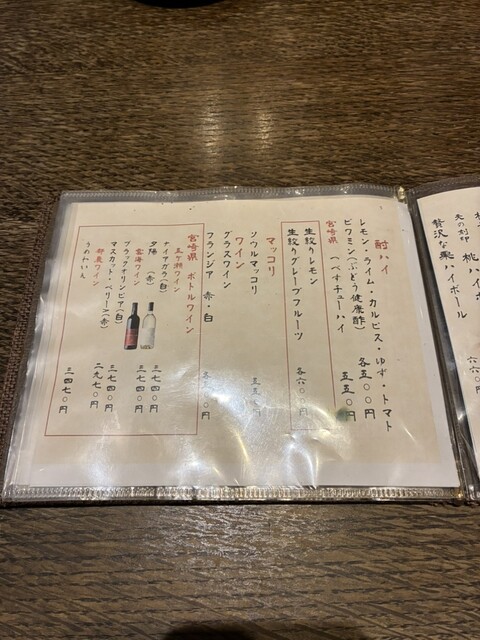 酎ハイ
レモン・ライム・カルピス・ゆず・トマト 各五〇〇円
ビワミン(ぶどう健康酢) 五五〇円
宮崎県 (へべすチューハイ
生絞りレモン
生絞りグレープフルーツ 各六〇〇円
マッコリ
ソウルマッコリ 五五〇円
ワイン
グラスワイン
フランジア 赤・白
宮崎県 ボトルワイン
五ヶ瀬ワイン
ナイアガラ(白) 三七四〇円
夕陽 (赤) 三七四〇円
雲海ワイン
ブラックオリンピア(白) 三七四〇円
マスカット・ベリーA(赤) 二九七〇円
都農ワイン
うめわいん 三四七〇円
先の刻印 桃ハイボ
贅沢な果ハイボール